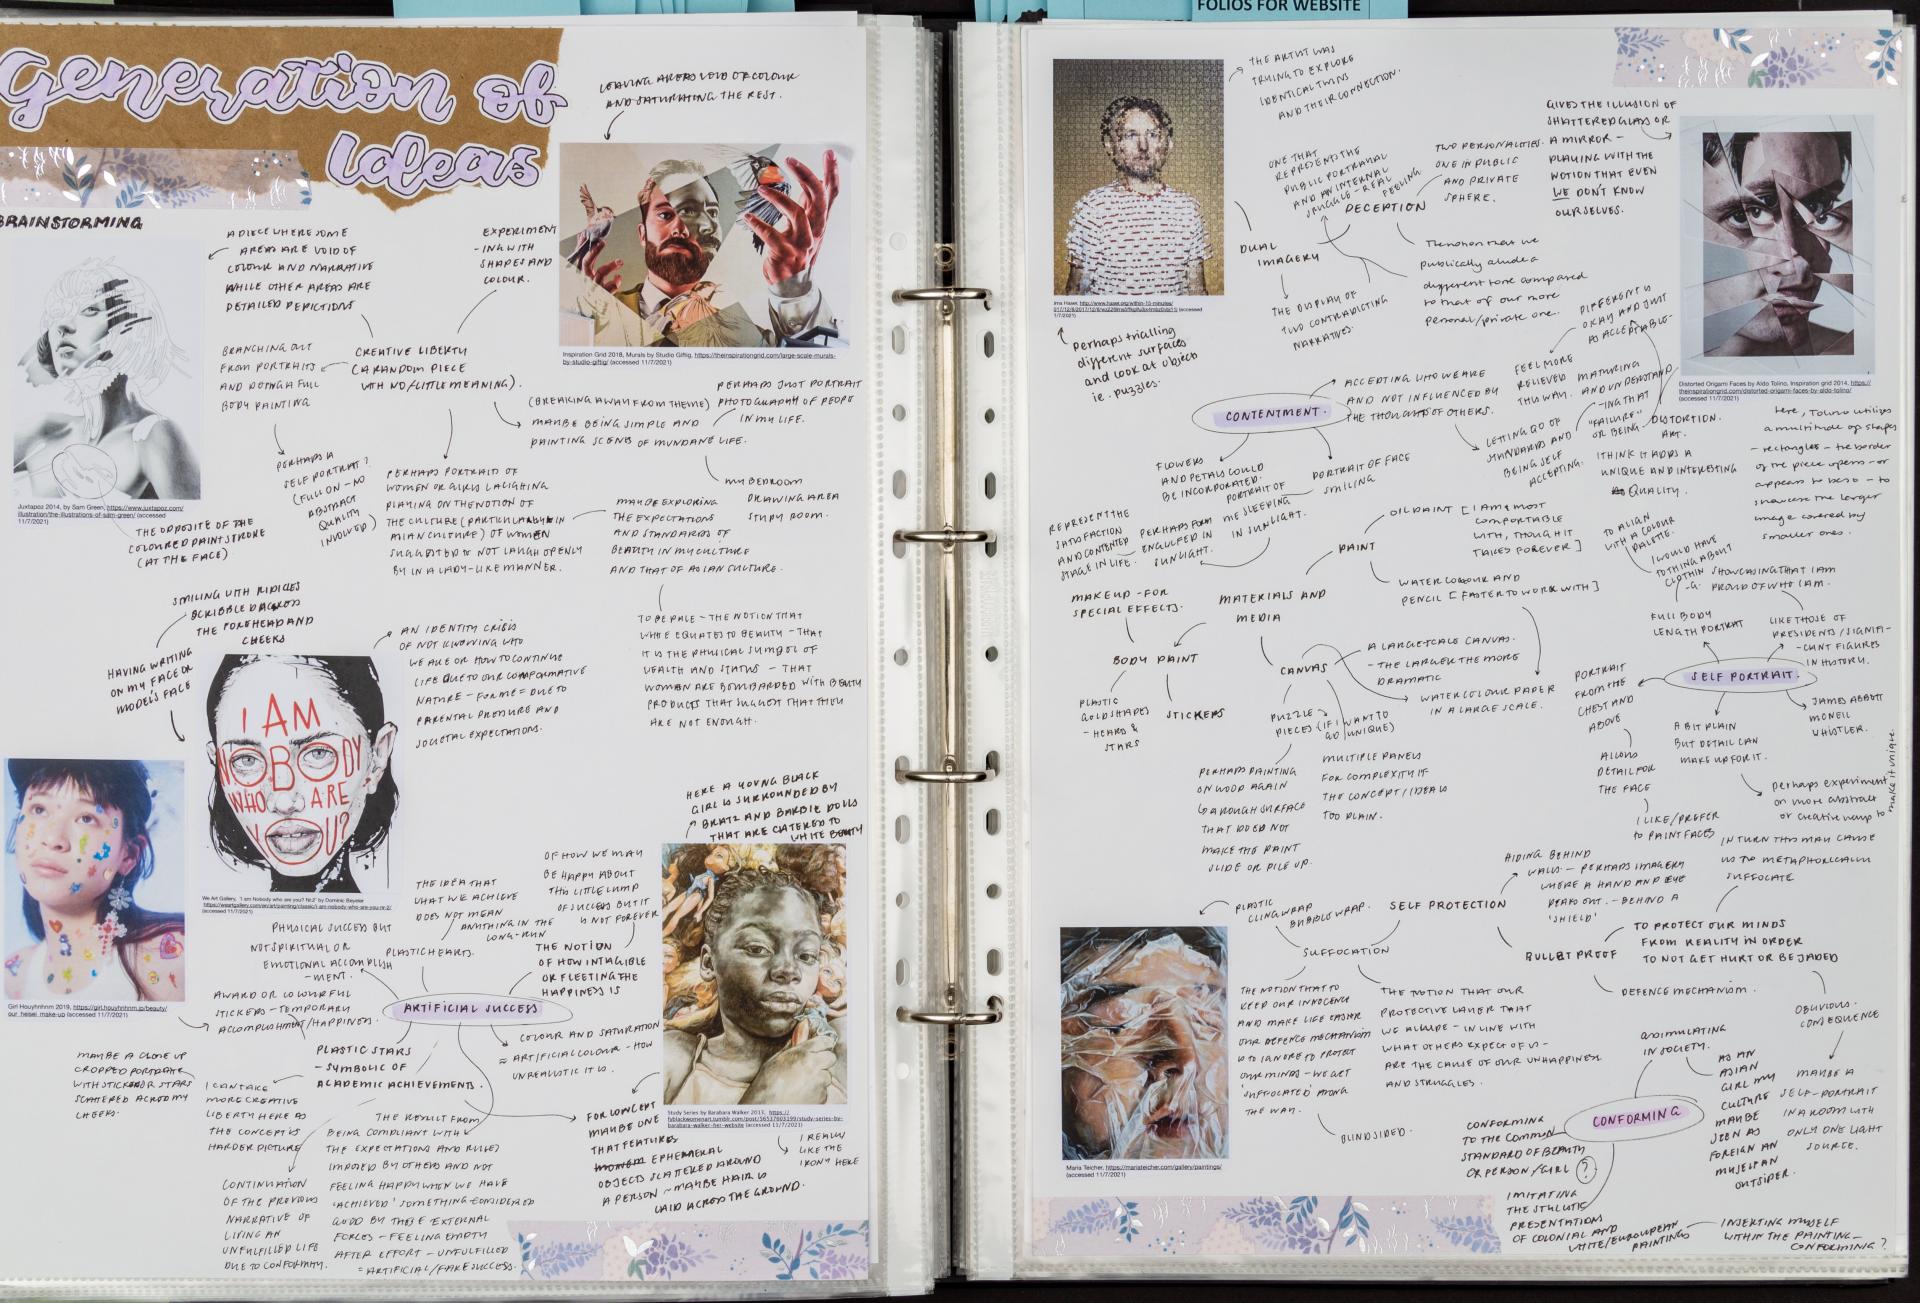 FOLIOS FOR WEBSITE
Generation of
Ideas
BRAINSTORMING
LEAVING AREAS VOID OF COLOUR
AND SATURATING THE REST.
A PIECE WHERE SOME
AREAS ARE VOID OF
COLOUR AND NARRATIVE
WHILE OTHER AREAS ARE
DETAILED DEPICTIONS
EXPERIMENT
-ING WITH
SHAPES AND
COLOUR.
Inspiration Grid 2018, Murals by Studio Giftig, https://theinspirationgrid.com/large-scale-murals-
by-studio-giftig/ (accessed 11/7/2021)
BRANCHING OUT
FROM PORTRAITS
AND DOING A FULL
BODY PAINTING
CREATIVE LIBERTY
(A RANDOM PIECE
WITH NO/LITTLE MEANING).
(BREAKING AWAY FROM THEME)
MAYBE BEING SIMPLE AND
PAINTING SCENES OF MUNDANE LIFE.
PERHAPS JUST PORTRAIT
PHOTOGRAPHY OF PEOPLE
IN MY LIFE.
MY BEDROOM
DRAWING AREA
STUDY ROOM.
Juxtapoz 2014, by Sam Green, https://www.juxtapoz.com/
illustration/the-illustrations-of-sam-green/ (accessed
11/7/2021)
THE OPPOSITE OF THE
COLOURED PAINT STROKE
(AT THE FACE)
PERHAPS A
SELF PORTRAIT?
(FULL ON - NO
ABSTRACT
QUALITY
INVOLVED)
PERHAPS PORTRAIT OF
WOMEN OR GIRLS LAUGHING
PLAYING ON THE NOTION OF
THE CULTURE (PARTICULARLY IN
ASIAN CULTURE) OF WOMEN
SUGGESTED TO NOT LAUGH OPENLY
BY IN A LADY-LIKE MANNER.
MAYBE EXPLORING
THE EXPECTATIONS
AND STANDARDS OF
BEAUTY IN MY CULTURE
AND THAT OF ASIAN CULTURE.
TO BE PALE - THE NOTION THAT
WHITE EQUATES TO BEAUTY - THAT
IT IS THE PHYSICAL SYMBOL OF
WEALTH AND STATUS - THAT
WOMEN ARE BOMBARDED WITH BEAUTY
PRODUCTS THAT SUGGEST THAT THEY
ARE NOT ENOUGH.
SMILING WITH RIDICLES
SCRIBBLED ACROSS
THE FOREHEAD AND
CHEEKS
HAVING WRITING
ON MY FACE OR
MODEL'S FACE
AN IDENTITY CRISIS
OF NOT KNOWING WHO
WE ARE OR HOW TO CONTINUE
LIFE DUE TO OUR CONFORMATIVE
NATURE - FOR ME = DUE TO
PARENTAL PRESSURE AND
SOCIETAL EXPECTATIONS.
I AM
NOBODY
WHO ARE
YOU?
We Art Gallery, 'I am Nobody who are you? Nr.2' by Dominic Beyeler
https://weartgallery.com/en/art/painting/classic/i-am-nobody-who-are-you-nr-2/
(accessed 11/7/2021)
HERE A YOUNG BLACK
GIRL IS SURROUNDED BY
BRATZ AND BARBIE DOLLS
THAT ARE CATERED TO
WHITE BEAUTY
OF HOW WE MAY
BE HAPPY ABOUT
THIS LITTLE LUMP
OF SUCCESS BUT IT
IS NOT FOREVER
THE IDEA THAT
WHAT WE ACHIEVE
DOES NOT MEAN
ANYTHING IN THE
LONG-RUN
PHYSICAL SUCCESS BUT
NOT SPIRITUAL OR
EMOTIONAL ACCOMPLISH
-MENT.
PLASTIC HEARTS.
THE NOTION
OF HOW INTANGIBLE
OR FLEETING THE
HAPPINESS IS
Girl Houyhnhnm 2019, https://girl.houyhnhnm.jp/beauty/
our_heisei_make-up (accessed 11/7/2021)
AWARD OR COLOURFUL
STICKERS - TEMPORARY
ACCOMPLISHMENT/HAPPINESS.
ARTIFICIAL SUCCESS
COLOUR AND SATURATION
= ARTIFICIAL COLOUR - HOW
UNREALISTIC IT IS.
PLASTIC STARS
- SYMBOLIC OF
ACADEMIC ACHIEVEMENTS.
MAYBE A CLOSE UP
CROPPED PORTRAIT
WITH STICKER STARS
SCATTERED ACROSS MY
CHEEKS.
I CAN TAKE
MORE CREATIVE
LIBERTY HERE AS
THE CONCEPT IS
HARDER PICTURE
THE RESULT FROM
BEING COMPLIANT WITH
THE EXPECTATIONS AND RULES
IMPOSED BY OTHERS AND NOT
FEELING HAPPY WHEN WE HAVE
'ACHIEVED' SOMETHING CONSIDERED
GOOD BY THESE EXTERNAL
FORCES - FEELING EMPTY
AFTER EFFORT - UNFULFILLED
= ARTIFICIAL/FAKE SUCCESS.
CONTINUATION
OF THE PREVIOUS
NARRATIVE OF
LIVING AN
UNFULFILLED LIFE
DUE TO CONFORMITY.
FOR CONCEPT
MAYBE ONE
THAT FEATURES
EPHEMERAL
OBJECTS SCATTERED AROUND
A PERSON - MAYBE HAIR IS
LAID ACROSS THE GROUND.
Study Series by Barabara Walker 2013, https://
fyblackwomenart.tumblr.com/post/56537603199/study-series-by-
barabara-walker-her-website (accessed 11/7/2021)
I REALLY
LIKE THE
IRONY HERE
THE ARTIST WAS
TRYING TO EXPLORE
IDENTICAL TWINS
AND THEIR CONNECTION.
ONE THAT
REPRESENTS THE
PUBLIC PORTRAYAL
AND AN INTERNAL
STRUGGLE - REAL
FEELING
TWO PERSONALITIES.
ONE IN PUBLIC
AND PRIVATE
SPHERE.
DECEPTION
DUAL
IMAGERY
THE DISPLAY OF
TWO CONTRADICTING
NARRATIVES.
The notion that we
publically elude a
different tone compared
to that of our more
personal/private one.
GIVES THE ILLUSION OF
SHATTERED GLASS OR
A MIRROR -
PLAYING WITH THE
NOTION THAT EVEN
WE DON'T KNOW
OURSELVES.
Perhaps trialling
different surfaces
and look at object
ie. puzzles.
Distorted Origami Faces by Aldo Tolino, Inspiration grid 2014, https://
theinspirationgrid.com/distorted-origami-faces-by-aldo-tolino/
(accessed 11/7/2021)
CONTENTMENT.
ACCEPTING WHO WE ARE
AND NOT INFLUENCED BY
THE THOUGHTS OF OTHERS.
FEEL MORE
RELIEVED
THIS WAY.
DIFFERENT IS
OKAY AND JUST
AS ACCEPTABLE
MATURING
AND UNDERSTAND
-ING THAT
"FAILURE"
OR BEING
LETTING GO OF
STANDARDS AND
BEING SELF
ACCEPTING.
DISTORTION
ART.
I THINK IT ADDS A
UNIQUE AND INTERESTING
QUALITY.
here, Tolino utilizes
a multitude of shapes
- rectangles - the border
of the piece opens - or
appears to be so - to
showcase the larger
image covered by
smaller ones.
FLOWERS
AND PETALS COULD
BE INCORPORATED.
PORTRAIT OF FACE
SMILING
PORTRAIT OF
ME SLEEPING
IN SUNLIGHT.
REPRESENT THE
SATISFACTION
AND CONTENTED
STAGE IN LIFE.
PERHAPS FORM
ENGULFED IN
SUNLIGHT.
MAKEUP - FOR
SPECIAL EFFECTS.
BODY PAINT
PLASTIC
GOLD SHAPES
- HEARTS &
STARS
STICKERS
MATERIALS AND
MEDIA
PAINT
OIL PAINT [I AM MOST
COMFORTABLE
WITH, THOUGH IT
TAKES FOREVER]
WATERCOLOUR AND
PENCIL [FASTER TO WORK WITH]
CANVAS
A LARGE SCALE CANVAS.
- THE LARGER THE MORE
DRAMATIC
WATERCOLOUR PAPER
IN A LARGE SCALE.
PUZZLE
PIECES
(IF I WANT TO
GO UNIQUE)
PERHAPS PAINTING
ON WOOD AGAIN
ROUGH SURFACE
THAT DOES NOT
MAKE THE PAINT
SLIDE OR PILE UP.
MULTIPLE PANELS
FOR COMPLEXITY IF
THE CONCEPT/IDEA IS
TOO PLAIN.
TO ALIGN
WITH A COLOUR
PALETTE.
I WOULD HAVE
TO THINK ABOUT
CLOTHIN
-G.
SHOWCASING THAT I AM
PROUD OF WHO I AM.
FULL BODY
LENGTH PORTRAIT
LIKE THOSE OF
PRESIDENTS/SIGNIFI-
-CANT FIGURES
IN HISTORY.
SELF PORTRAIT.
PORTRAIT
FROM THE
CHEST AND
ABOVE
ALLOWS
DETAIL FOR
THE FACE
I LIKE/PREFER
TO PAINT FACES
A BIT PLAIN
BUT DETAIL CAN
MAKE UP FOR IT.
JAMES ABBOTT
MCNEIL
WHISTLER.
Perhaps experiment
on more abstract
or creative ways to
make it unique.
PLASTIC
CLINGWRAP
BUBBLE WRAP.
SELF PROTECTION
HIDING BEHIND
WALLS - PERHAPS IMAGERY
WHERE A HAND AND EYE
PEAKS OUT. - BEHIND A
'SHIELD'
IN TURN THIS MAY CAUSE
US TO METAPHORICALLY
SUFFOCATE
SUFFOCATION
BULLETPROOF
TO PROTECT OUR MINDS
FROM REALITY IN ORDER
TO NOT GET HURT OR BE JADED
DEFENCE MECHANISM.
OBLIVIOUS
CONSEQUENCE
THE NOTION THAT TO
KEEP OUR INNOCENCE
AND MAKE LIFE EASIER
OUR DEFENCE MECHANISM
IS TO IGNORE TO PROTECT
OUR MINDS - WE GET
'SUFFOCATED' ALONG
THE WAY.
BLINDSIDED.
THE NOTION THAT OUR
PROTECTIVE LAYER THAT
WE ALLUDE - IN LINE WITH
WHAT OTHERS EXPECT OF US -
ARE THE CAUSE OF OUR UNHAPPINESS
AND STRUGGLES.
Maria Teicher, https://mariateicher.com/gallery/paintings/
(accessed 11/7/2021)
ASSIMILATING
IN SOCIETY.
CONFORMING
CONFORMING
TO THE COMMON
STANDARD OF BEAUTY
OR PERSON/GIRL ?
AS AN
ASIAN
GIRL MY
CULTURE
MAYBE
SEEN AS
FOREIGN AN
MYSELF AN
OUTSIDER.
MAYBE A
SELF-PORTRAIT
IN A ROOM WITH
ONLY ONE LIGHT
SOURCE.
IMITATING
THE STYLISTIC
PRESENTATIONS
OF COLONIAL AND
WHITE/EUROPEAN
PAINTINGS
INSERTING MYSELF
WITHIN THE PAINTING -
CONFORMING?